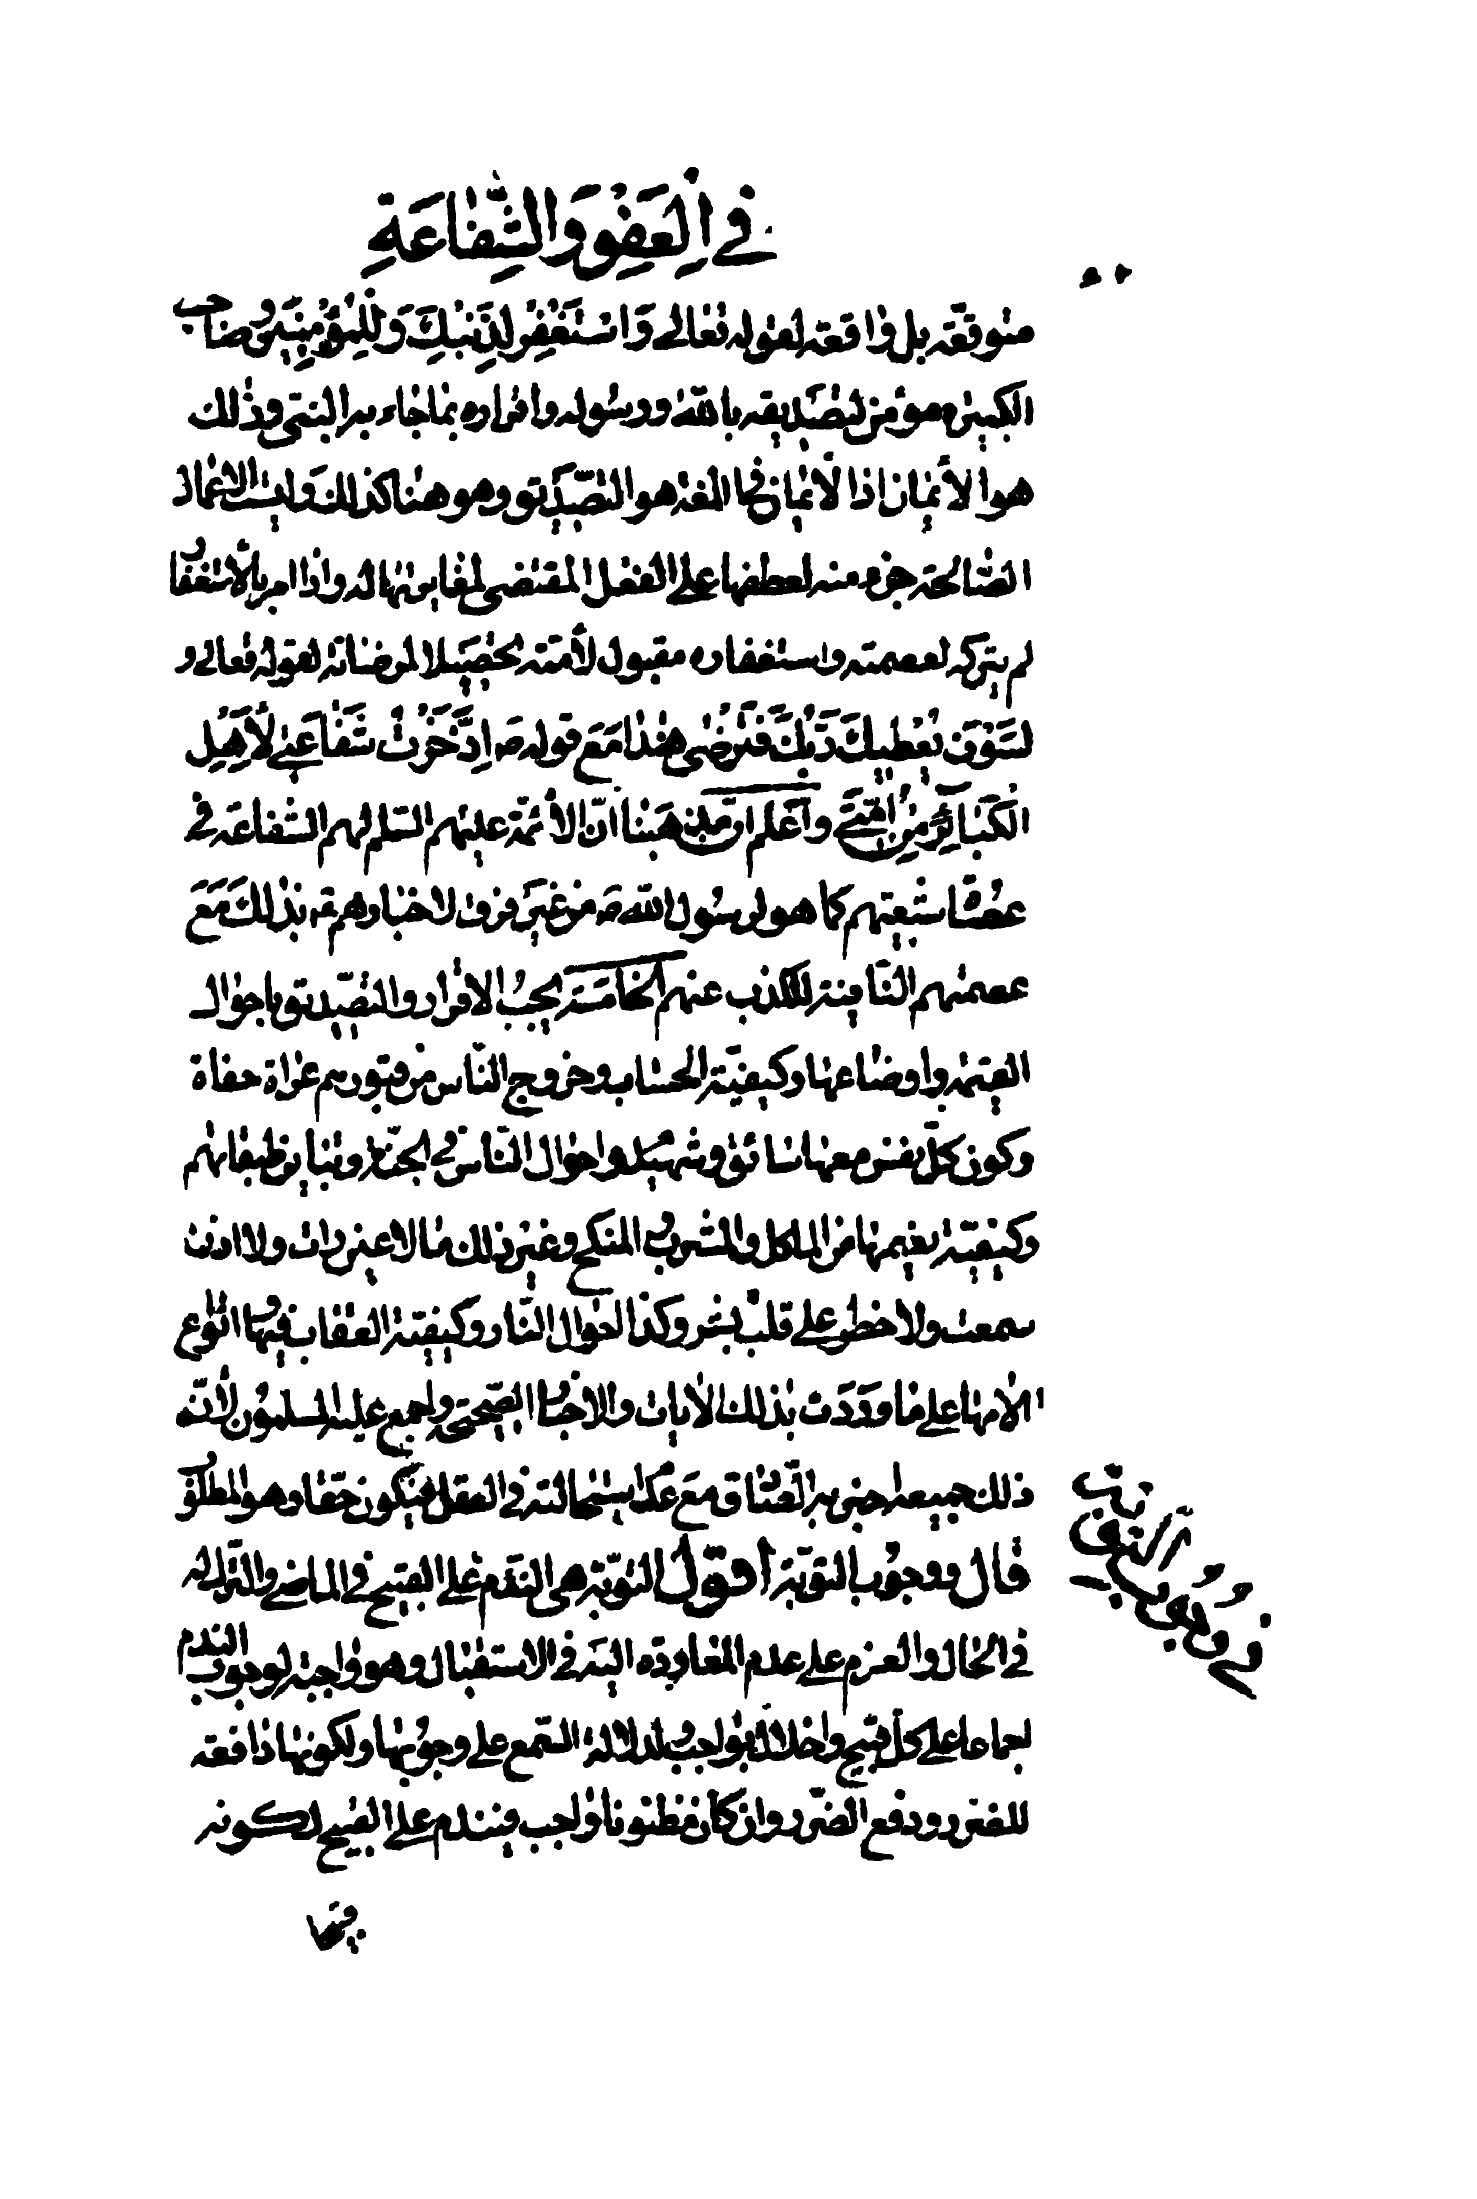 في العفو والشفاعة
متوقعة بل واقعة لقوله تعالى وَاسْتَغْفِرْ لِذَنْبِكَ وَلِلْمُؤْمِنِينَ وصاحب
الكبيرة مؤمن لتصديقه بالله ورسوله واقراره بما جاء به النبي وذلك
هو الأيمان اذا الأيمان في اللغة هو التصديق وهو هنا كذلك وليست الاعمال
الصالحة جزء منه لعطفها على الفعل المقتضى لمغايرتها له واذا امر بالأستغفار
لم يتركه لعصمته واستغفاره مقبول لأمته تحصيلا لمرضاته لقوله تعالى و
لَسَوْفَ يُعْطِيكَ رَبُّكَ فَتَرْضى هذا مَعَ قوله ص اِدَّخَرْتُ شَفَاعَتي لأَهْلِ
الكَبَائِرِ مِنْ اُمَّتي واعْلم انّ مذهبنا انّ الأئمّة عليهم السّلم لهم الشفاعة في
عصاة شيعتهم كما هو لرسول الله ص من غير فرق لاخبارهم بذلك مَعَ
عصمتهم النّافية للكذب عنهم الخامسة يجب الاقرار والتصديق باحوال
القيمة واوضاعها وكيفيّة الحساب وخروج النّاس من قبورهم عراة حفاة
وكون كلّ نفس معها سائق وشهيد واحوال النّاس في الجنّة وتباين طبقاتهم
وكيفيّة نعيمها من الماكل والمشرب والمنكح وغير ذلك مما لا عين رات ولا اذن
سمعت ولا خطر على قلب بشر وكذا احوال النّار وكيفيّة العقاب فيها وانواع
الامها على ما وردت بذلك الايات والاخبار الصّحيحة واجمع عليه المسلمون لأنّه
ذلك جميعه اخبر به الصّادق مَعَ عدم استحالته في العقل فيكون حقّا وهو المطلوب
قال ووجوب التوبة اقول التوبة هي النّدم على القبيح في الماضي والترك له
في الحال والعزم على عدم المعاودة اليه في الاستقبال وهو واجبة لوجوب الندم
اجماعا على كلّ قبيح واخلال بواجب ولدلالة السّمع على وجوبها ولكونها دافعة
للضرر ودفع الضّرر وان كان مظنونا واجب فيندم على القبيح لكونه
في وجوب التوبة